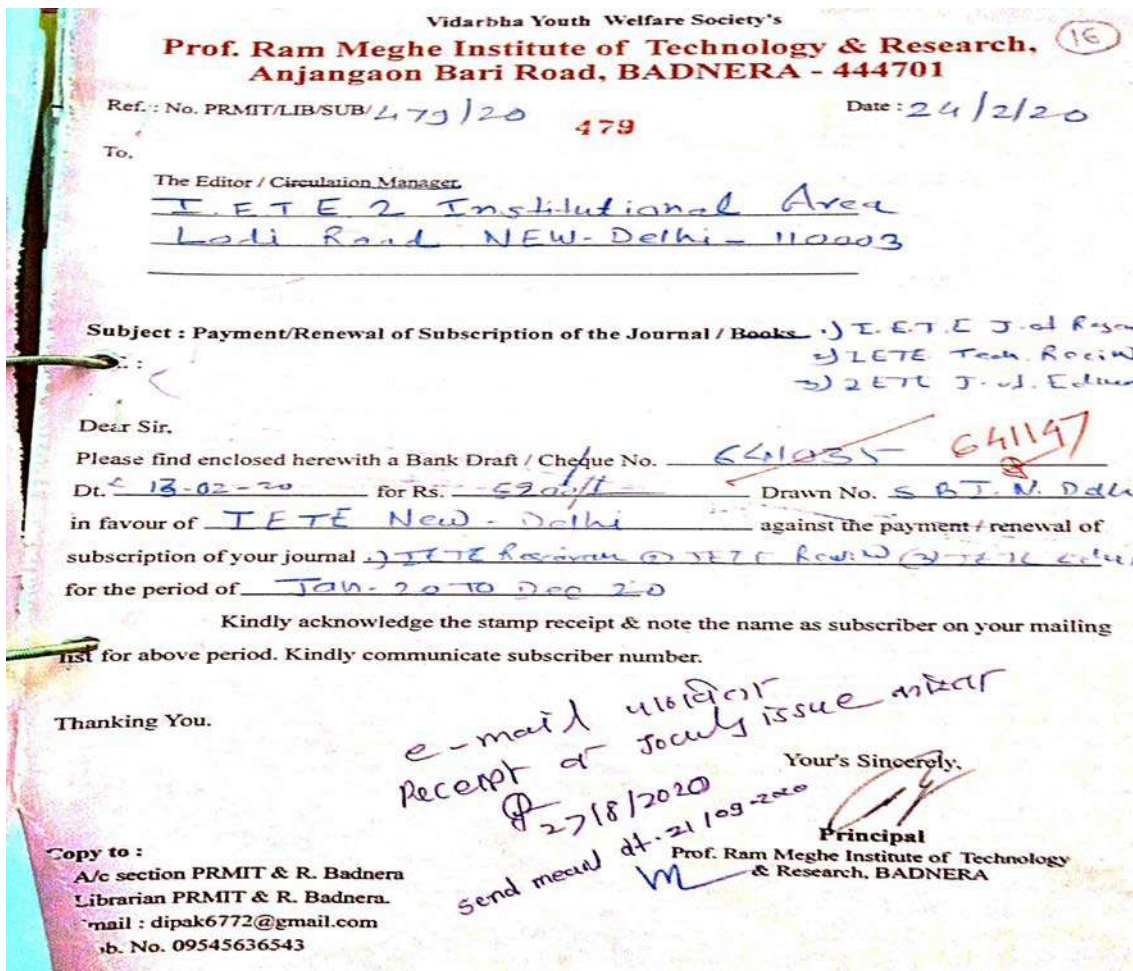 Vidarbha Youth Welfare Society's
Prof. Ram Meghe Institute of Technology & Research,
16
Anjangaon Bari Road, BADNERA - 444701
Ref.: No. PRMIT/LIB/SUB/479/20
Date : 24/2/20
479
To,
The Editor / Circulation Manager,
I.E.T.E 2 Institutional Area
Lodi Road NEW-Delhi - 110003
Subject : Payment/Renewal of Subscription of the Journal / Books 1) I.E.T.E J. of
2) IETE Tech.
3) IETE J. of.
Dear Sir,
Please find enclosed herewith a Bank Draft / Cheque No. 641035 641147
Dt. 13-02-20 for Rs. 5900/- Drawn No. S B I. N. Delhi
in favour of IETE New-Delhi against the payment / renewal of
subscription of your journal 1) IETE
for the period of Jan-20 TO Dec 20
Kindly acknowledge the stamp receipt & note the name as subscriber on your mailing
list for above period. Kindly communicate subscriber number.
Thanking You.
e-mail
Receipt issue
27/8/2020
send dt. 21/09-2020
Your's Sincerely,
Principal
Prof. Ram Meghe Institute of Technology
& Research, BADNERA
Copy to :
A/c section PRMIT & R. Badnera
Librarian PRMIT & R. Badnera.
mail : dipak6772@gmail.com
b. No. 09545636543